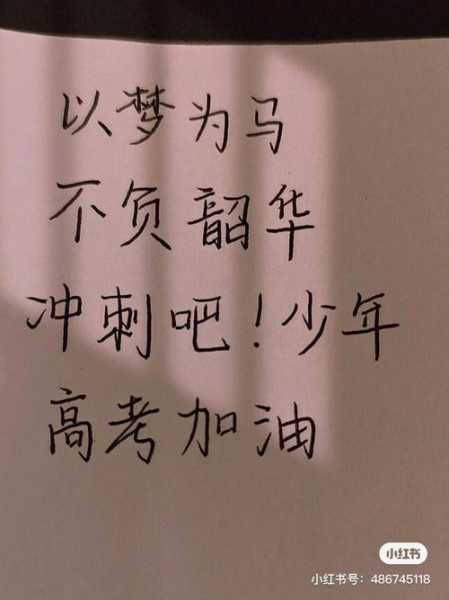 以梦为马
不负韶华
冲刺吧！少年
高考加油
小红书
小红书号：486745118